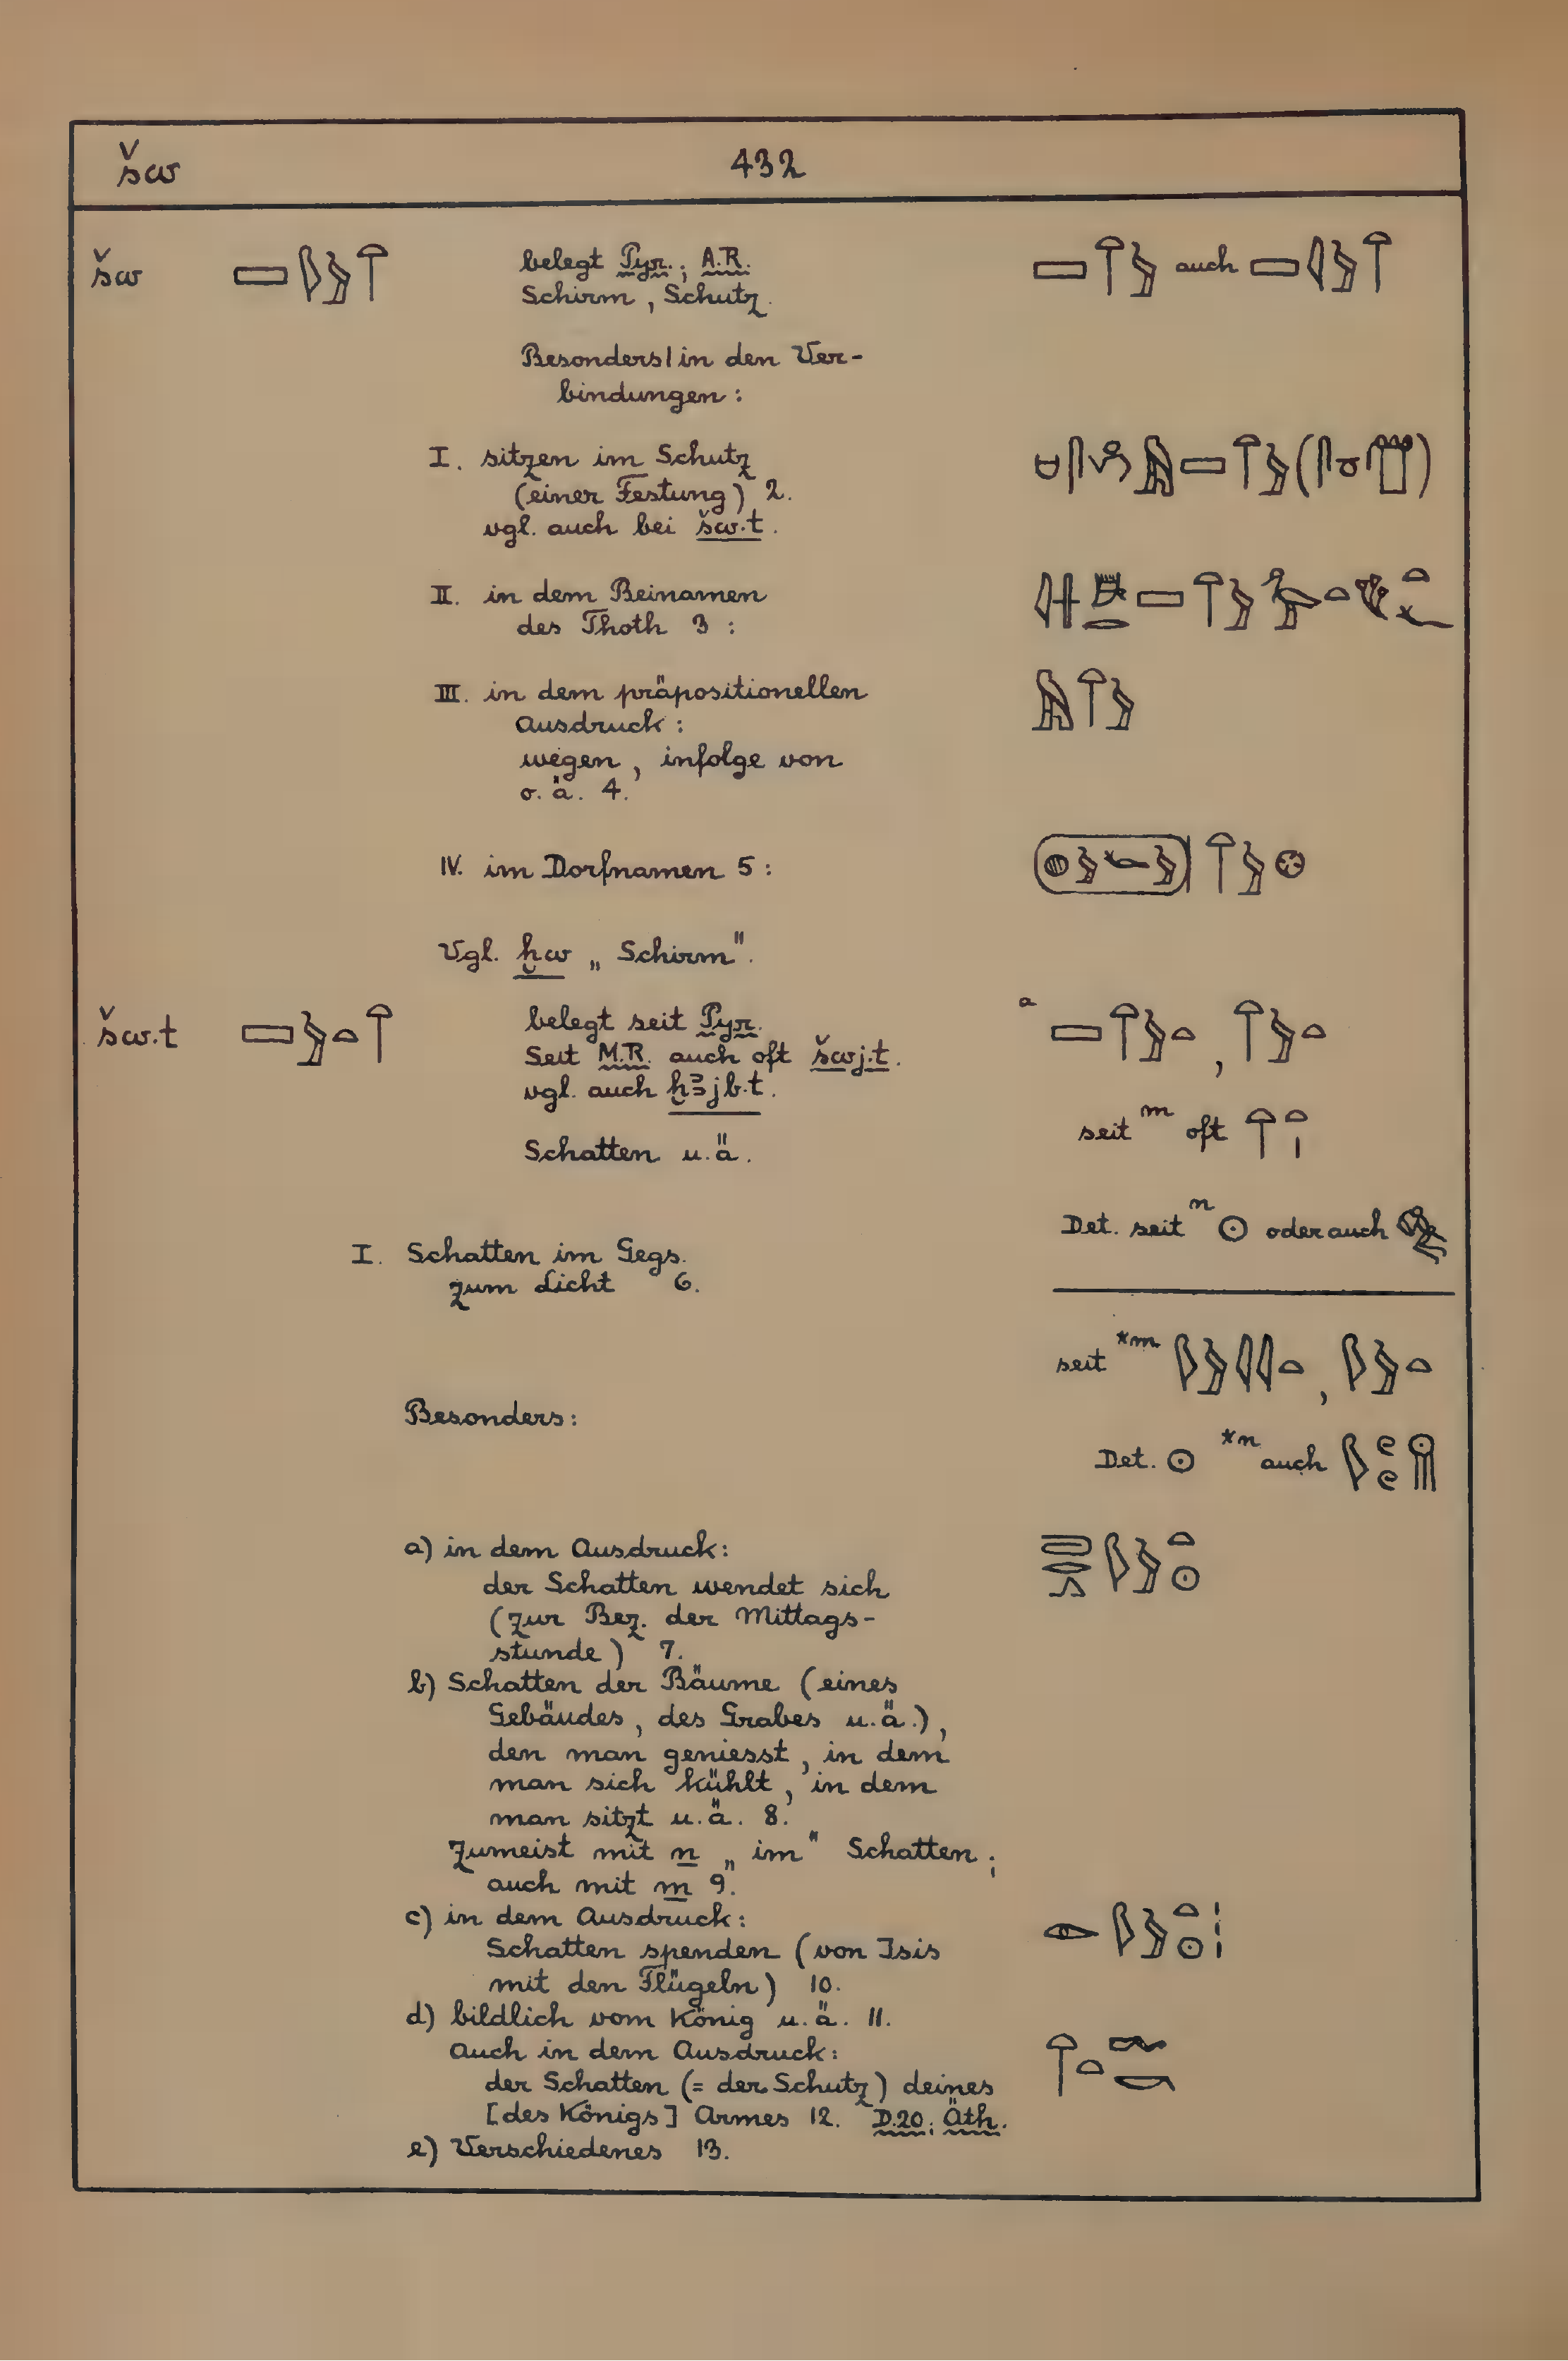 šw 432
šw belegt Pyr.; A.R. auch
Schirm, Schutz.
Besonders 1 in den Ver-
bindungen:
I. sitzen im Schutz
(einer Festung) 2.
vgl. auch bei šw.t.
II. in dem Beinamen
des Thoth 3 :
III. in dem präpositionellen
Ausdruck:
wegen, infolge von
o. ä. 4.
IV. im Dorfnamen 5 :
Vgl. ḫw „Schirm".
šw.t belegt seit Pyr. a
Seit M.R. auch oft šwj.t.
vgl. auch ḫꜣjb.t.
seit m oft
Schatten u.ä.
Det. seit n ☉ oder auch
I. Schatten im Gegs.
zum Licht 6.
seit *m
Besonders:
Det. ☉ *n auch
a) in dem Ausdruck:
der Schatten wendet sich
(zur Bez. der Mittags-
stunde) 7.
b) Schatten der Bäume (eines
Gebäudes, des Grabes u.ä.),
den man geniesst, in dem
man sich kühlt, in dem
man sitzt u.ä. 8.
Zumeist mit n „im" Schatten;
auch mit m 9.
c) in dem Ausdruck:
Schatten spenden (von Isis
mit den Flügeln) 10.
d) bildlich vom König u.ä. 11.
Auch in dem Ausdruck:
der Schatten (= der Schutz) deines
[des Königs] Armes 12. D.20; Äth.
e) Verschiedenes 13.